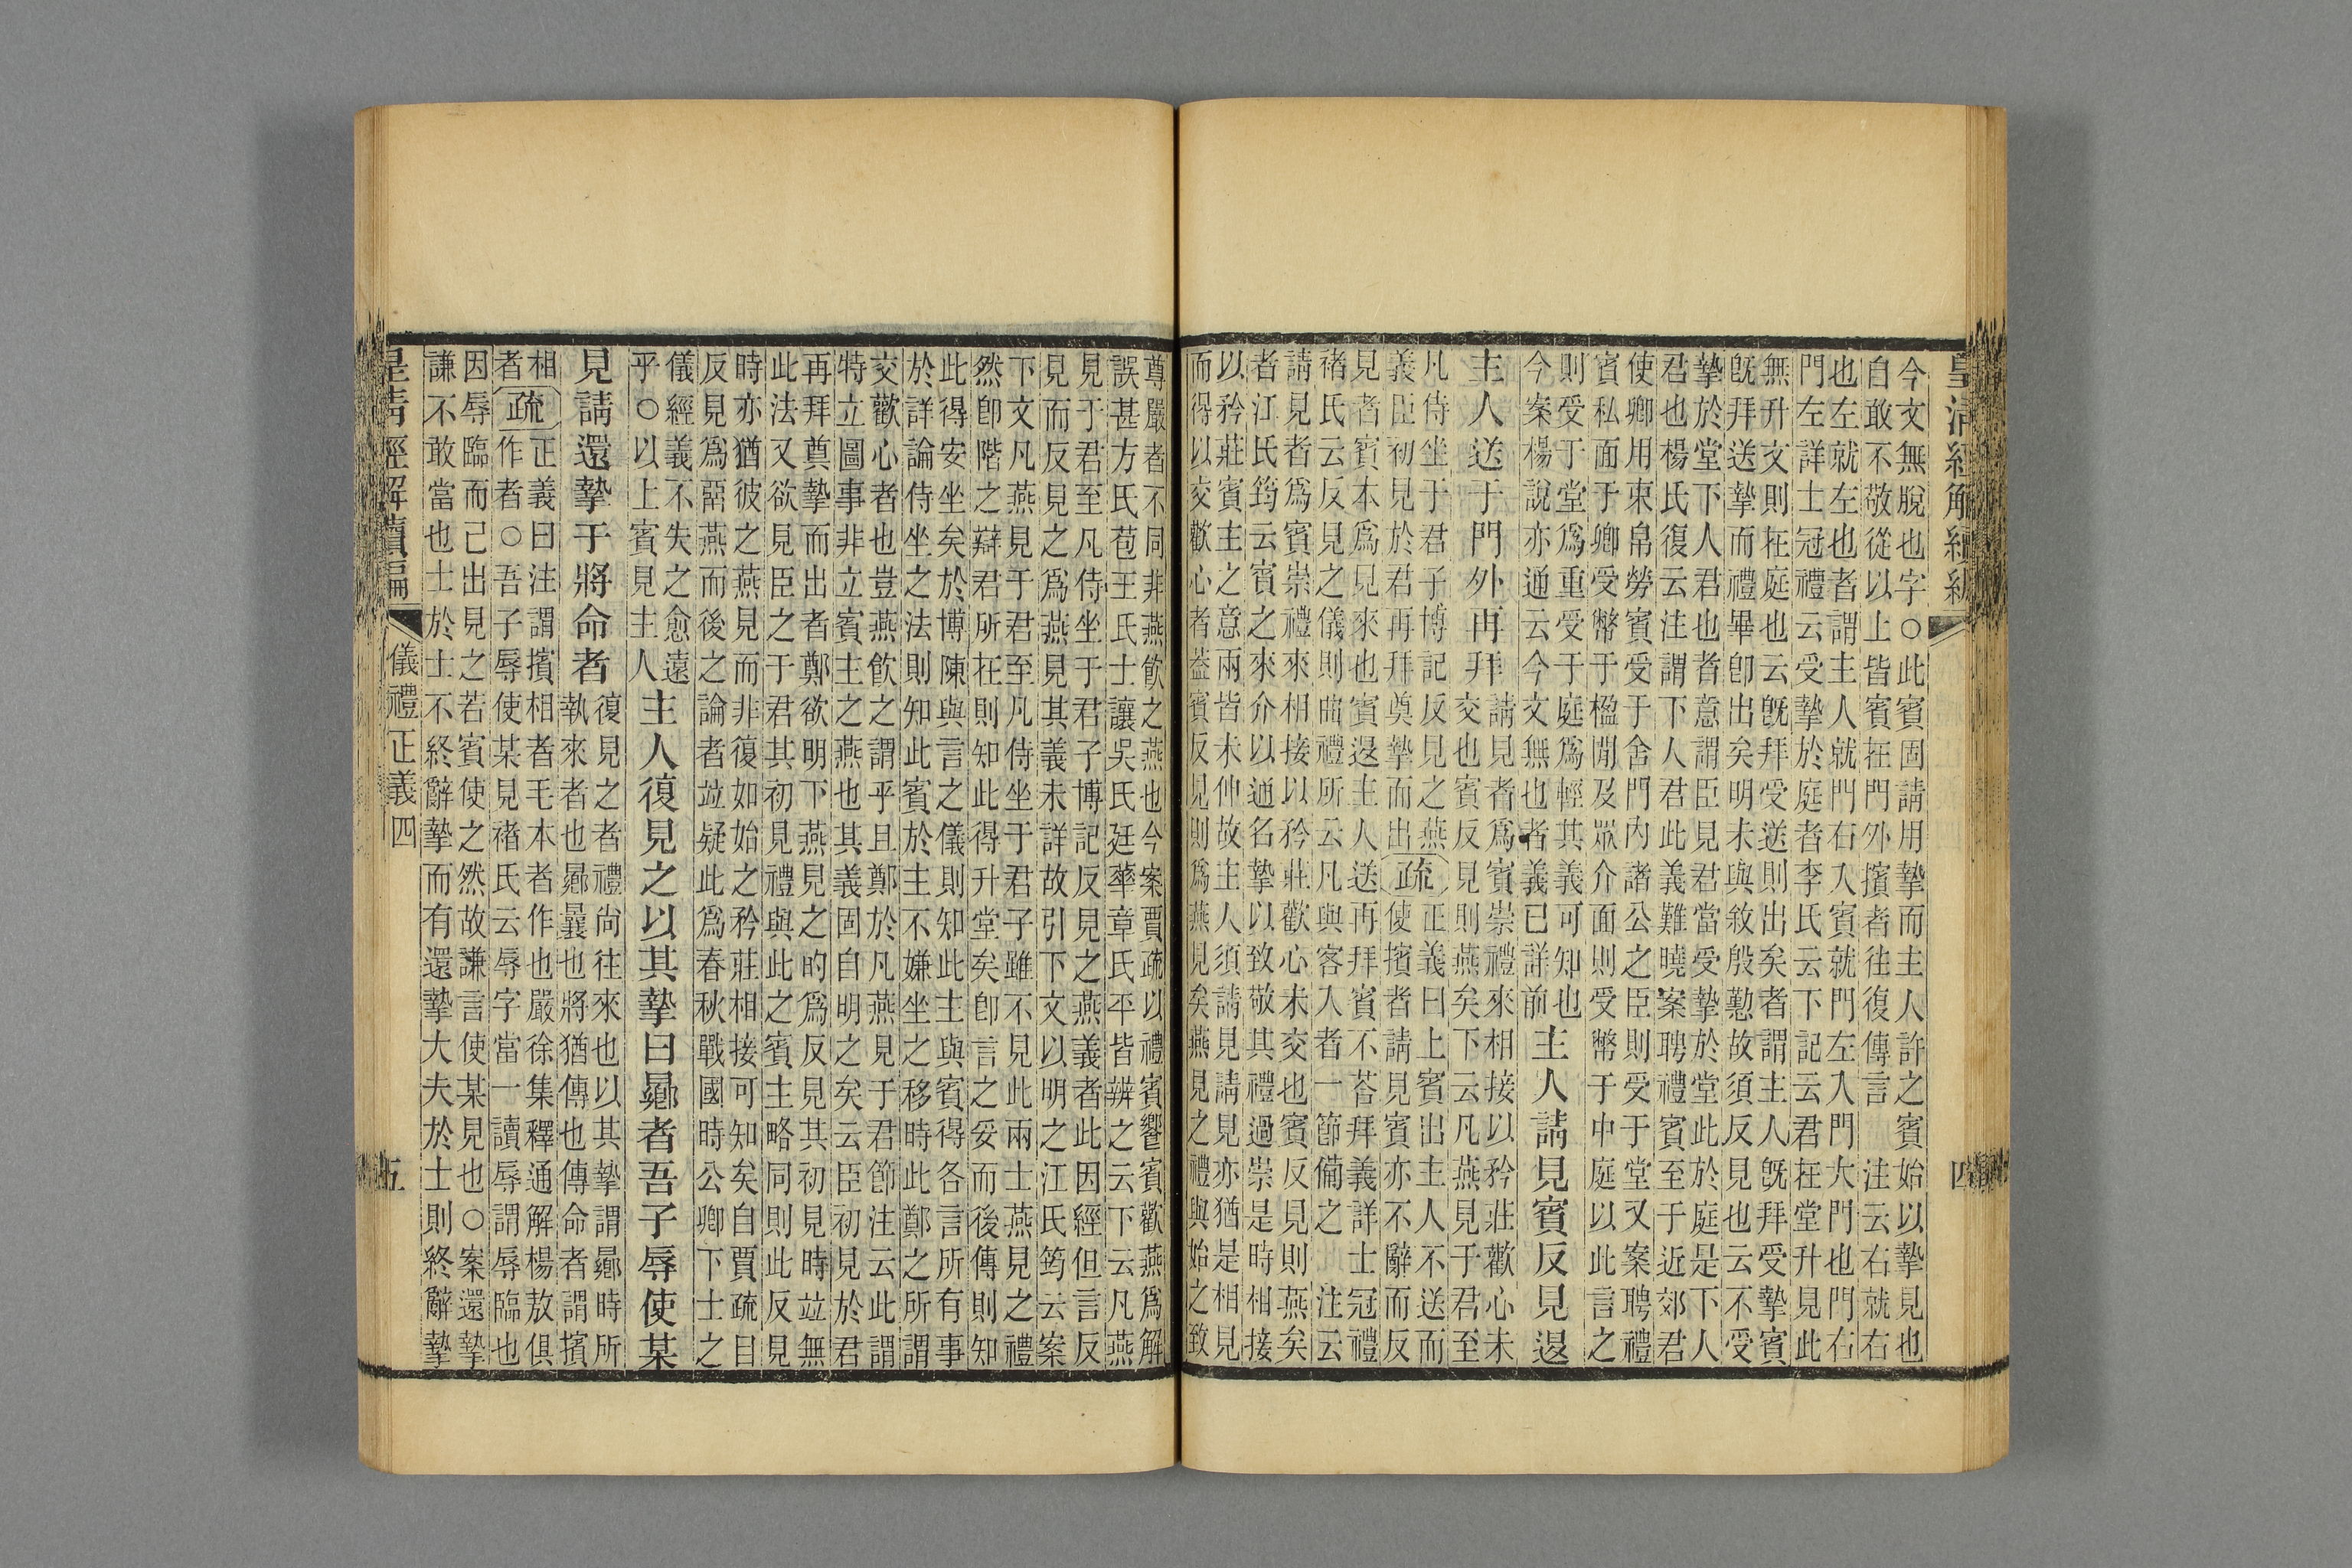 今文無脫也字○此賓固請用摯而主人許之賓始以摯見也
自敢不敬從以上皆賓在門外擯者往復傳言　注云右就右
也左就左也者謂主人就門右入賓就門左入門大門也門右
門左詳士冠禮云受摯於庭者李氏云下記云君在堂升見此
無升文則在庭也云旣拜受送則出矣者謂主人旣拜受摯賓
旣拜送摯而禮畢卽出矣明未與敘殷懃故須反見也云不受
摯於堂下人君也者意謂臣見君當受摯於堂此於庭是下人
君也楊氏復云注謂下人君此義難曉案聘禮賓至于近郊君
使卿用束帛勞賓受于舍門內諸公之臣則受于堂又案聘禮
賓私面于卿受幣于楹閒及眾介面則受幣于中庭以此言之
則受于堂爲重受于庭爲輕其義可知也
今案楊說亦通云今文無也者義已詳前
主人請見賓反見退
主人送于門外再拜
請見者爲賓崇禮來相接以矜莊歡心未
交也賓反見則燕矣下云凡燕見于君至
凡侍坐于君子博記反見之燕
義臣初見於君再拜奠摯而出
疏
正義曰上賓出主人不送而
使擯者請見賓亦不辭而反
見者賓本爲見來也賓退主人送再拜賓不荅拜義詳士冠禮
褚氏云反見之儀則曲禮所云凡與客入者一節備之　注云
請見者爲賓崇禮來相接以矜莊歡心未交也賓反見則燕矣
者江氏筠云賓之來介以通名摯以致敬其禮過崇是時相接
以矜莊賓主之意兩皆未伸故主人須請見請見亦猶是相見
而得以交歡心者葢賓反見則爲燕見矣燕見之禮與始之致
尊嚴者不同非燕飮之燕也今案賈疏以禮賓饗賓歡燕爲解
誤甚方氏苞王氏士讓吳氏廷華章氏平皆辨之云下云凡燕
見于君至凡侍坐于君子博記反見之燕義者此因經但言反
見而反見之爲燕見其義未詳故引下文以明之江氏筠云案
下文凡燕見于君至凡侍坐于君子雖不見此兩士燕見之禮
然卽階之辯君所在則知此得升堂矣卽言之妥而後傳則知
此得安坐矣於博陳與言之儀則知此主與賓得各言所有事
於詳論侍坐之法則知此賓於主不嫌坐之移時此鄭之所謂
交歡心者也豈燕飮之謂乎且鄭於凡燕見于君節注云此謂
特立圖事非立賓主之燕也其義固自明之矣云臣初見於君
再拜奠摯而出者鄭欲明下燕見之的爲反見其初見時竝無
此法又欲見臣之于君其初見禮與此之賓主略同則此反見
時亦猶彼之燕見而非復如始之矜莊相接可知矣自賈疏目
反見爲函燕而後之論者竝疑此爲春秋戰國時公卿下士之
儀經義不失之愈遠
乎○以上賓見主人
主人復見之以其摯曰曏者吾子辱使某
見請還摯于將命者
復見之者禮尚往來也以其摯謂曏時所
執來者也曏曩也將猶傳也傳命者謂擯
相
者
疏
正義曰注謂擯相者毛本者作也嚴徐集釋通解楊敖俱
作者○吾子辱使某見褚氏云辱字當一讀辱謂辱臨也
因辱臨而己出見之若賓使之然故謙言使某見也○案還摯
謙不敢當也士於士不終辭摯而有還摯大夫於士則終辭摯
皇清經解續編
儀禮正義四
五